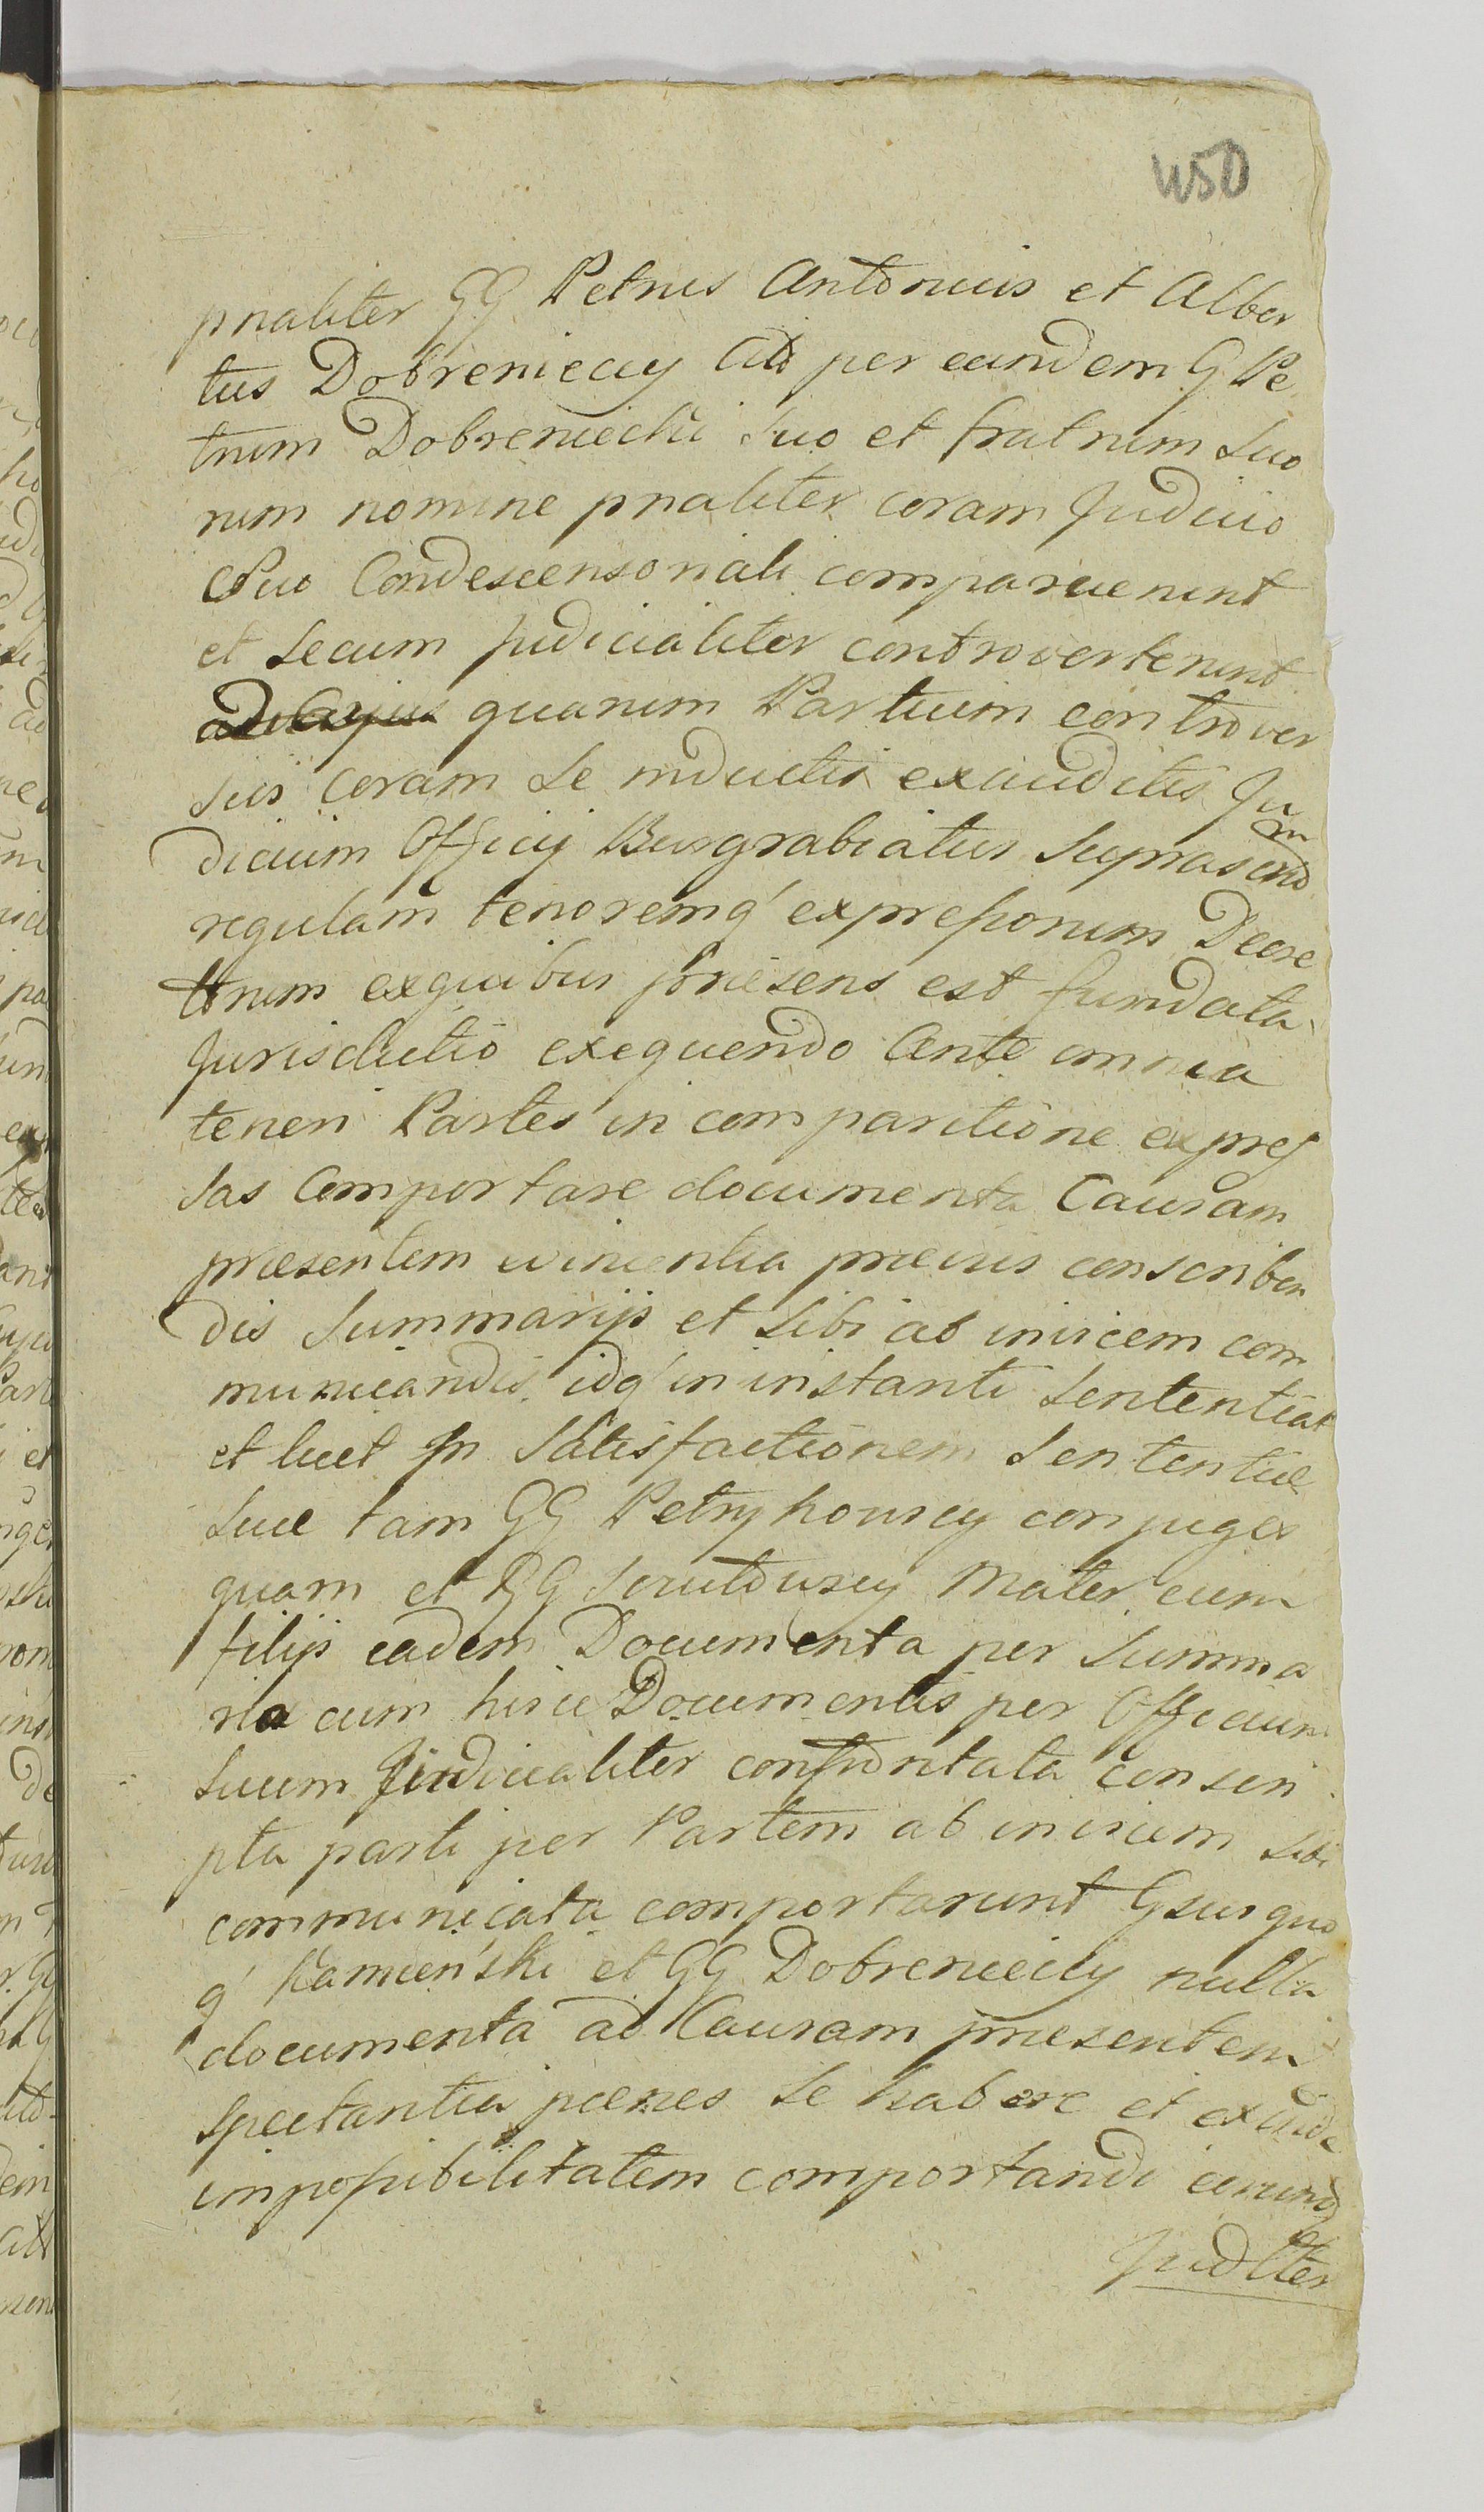 450
pnaliter GG Petrus Antonius et Alber
tus Dobrenieccy Ao per eundem G Pe
trum Dobreniecki suo et fratrum suo
rum nomine pnaliter coram Judicio
suo Condescensoriali comparuerunt
et secum judicialiter controverterunt
quarum Partium controver
sijs coram se inductis exauditis Ju
dicium Officij Burgrabiatus Suprascrip
regulam tenoremq' expressionum Decre
torum exquibus praesens est fundata
Jurisdictio exequendo Ante omnia
teneri Partes in comparitione expres
sas Comportare documenta Causam
praesentem evincentia praevis conscriben
dis Summarijs et sibi ab invicem com
municandis idq' in instanti sententiat
et licet In Satisfactionem Sententiae
suae tam GG Petrykowscy conjuges
quam et GG mater cum
filijs eadem Documenta per Summa
ria cum hisce Documentis per Officium
suum Judicialiter confrontata conscri
pta parti per Partem ab invicem sibi
communicata comportarunt Gsus quo
q' Kamieński et GG Dobrenieccy nulla
documenta ad Causam praesentem
spectantia paenes se habere et exinde
impossibilitatem comportandi eorund
Judlter